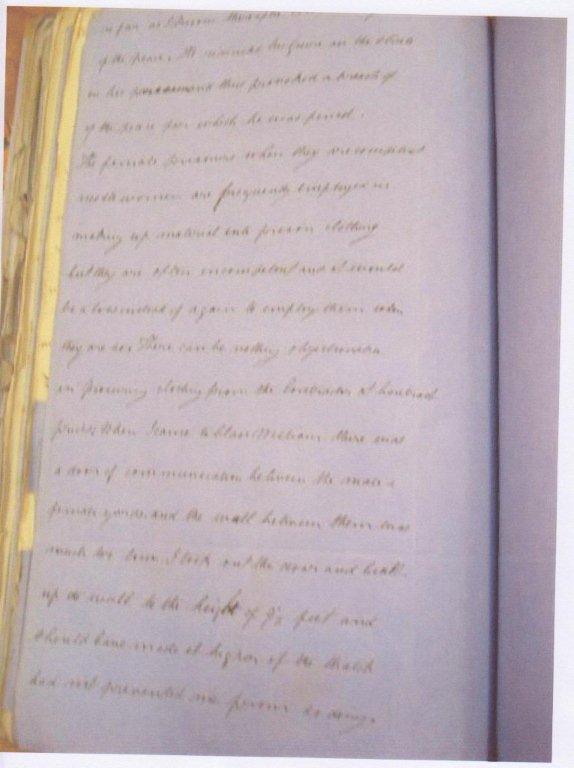 in far as I
of the peace. He
in his and thus provoked a breach of
of the peace for which he was fined.
The female prisoners when they are competent
women are frequently employed in
making up material into prison clothing
but they are often incompetent and it would
be a loss instead of a gain to employ them when
they are so. There can be nothing objectionable
in procuring clothing from the Contractor at Contract
prices. When I came to there was
a door of communication between the male &
female yards, and the wall between them was
much too low. I took out the door and built
up the wall to the height of 9½ feet and
should have made it higher if the thatch
had not prevented me from so doing.